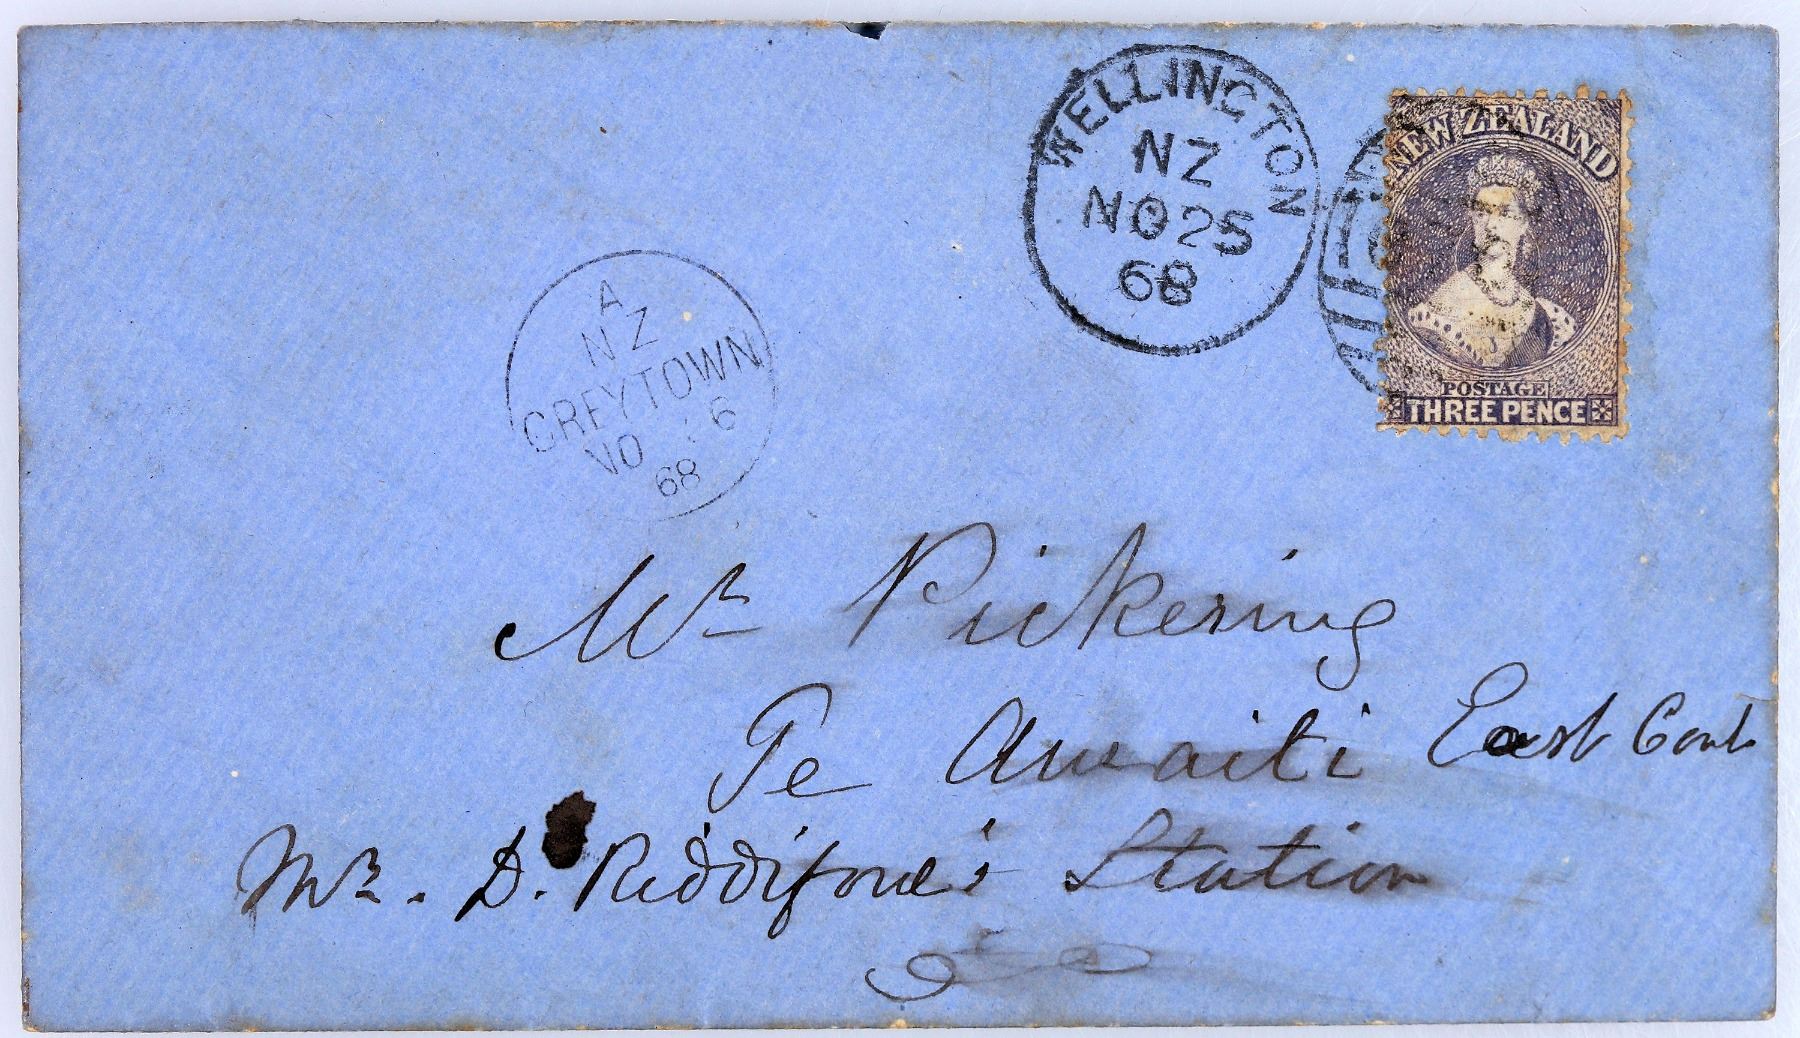 WELLINGTON
NZ
NO 25
68
NEW ZEALAND
POSTAGE
THREE PENCE
A
NZ
GREYTOWN
NO 6
68
Mr Pickering
Te Awaiti East Coast
Mr. D. Riddiford's Station